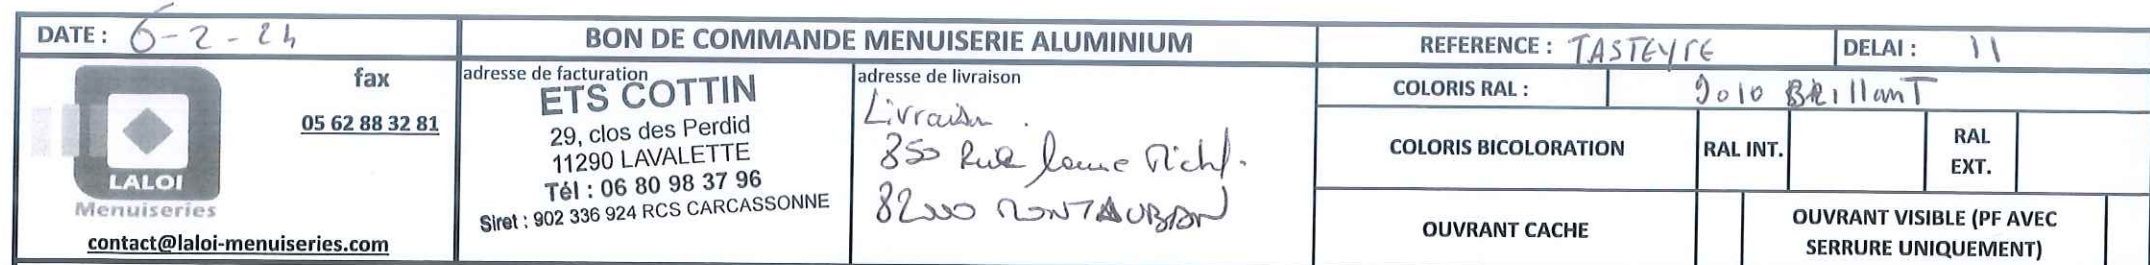 DATE : 6-2-24
BON DE COMMANDE MENUISERIE ALUMINIUM
REFERENCE : TASTEYRE
DELAI : 11
LALOI
Menuiseries
fax
05 62 88 32 81
contact@laloi-menuiseries.com
adresse de facturation
ETS COTTIN
29, clos des Perdid
11290 LAVALETTE
Tél : 06 80 98 37 96
Siret : 902 336 924 RCS CARCASSONNE
adresse de livraison
Livraison.
850 Rue
82000 MONTAUBAN
COLORIS RAL : 9010 BRillanT
COLORIS BICOLORATION
RAL INT.
RAL
EXT.
OUVRANT CACHE
OUVRANT VISIBLE (PF AVEC
SERRURE UNIQUEMENT)